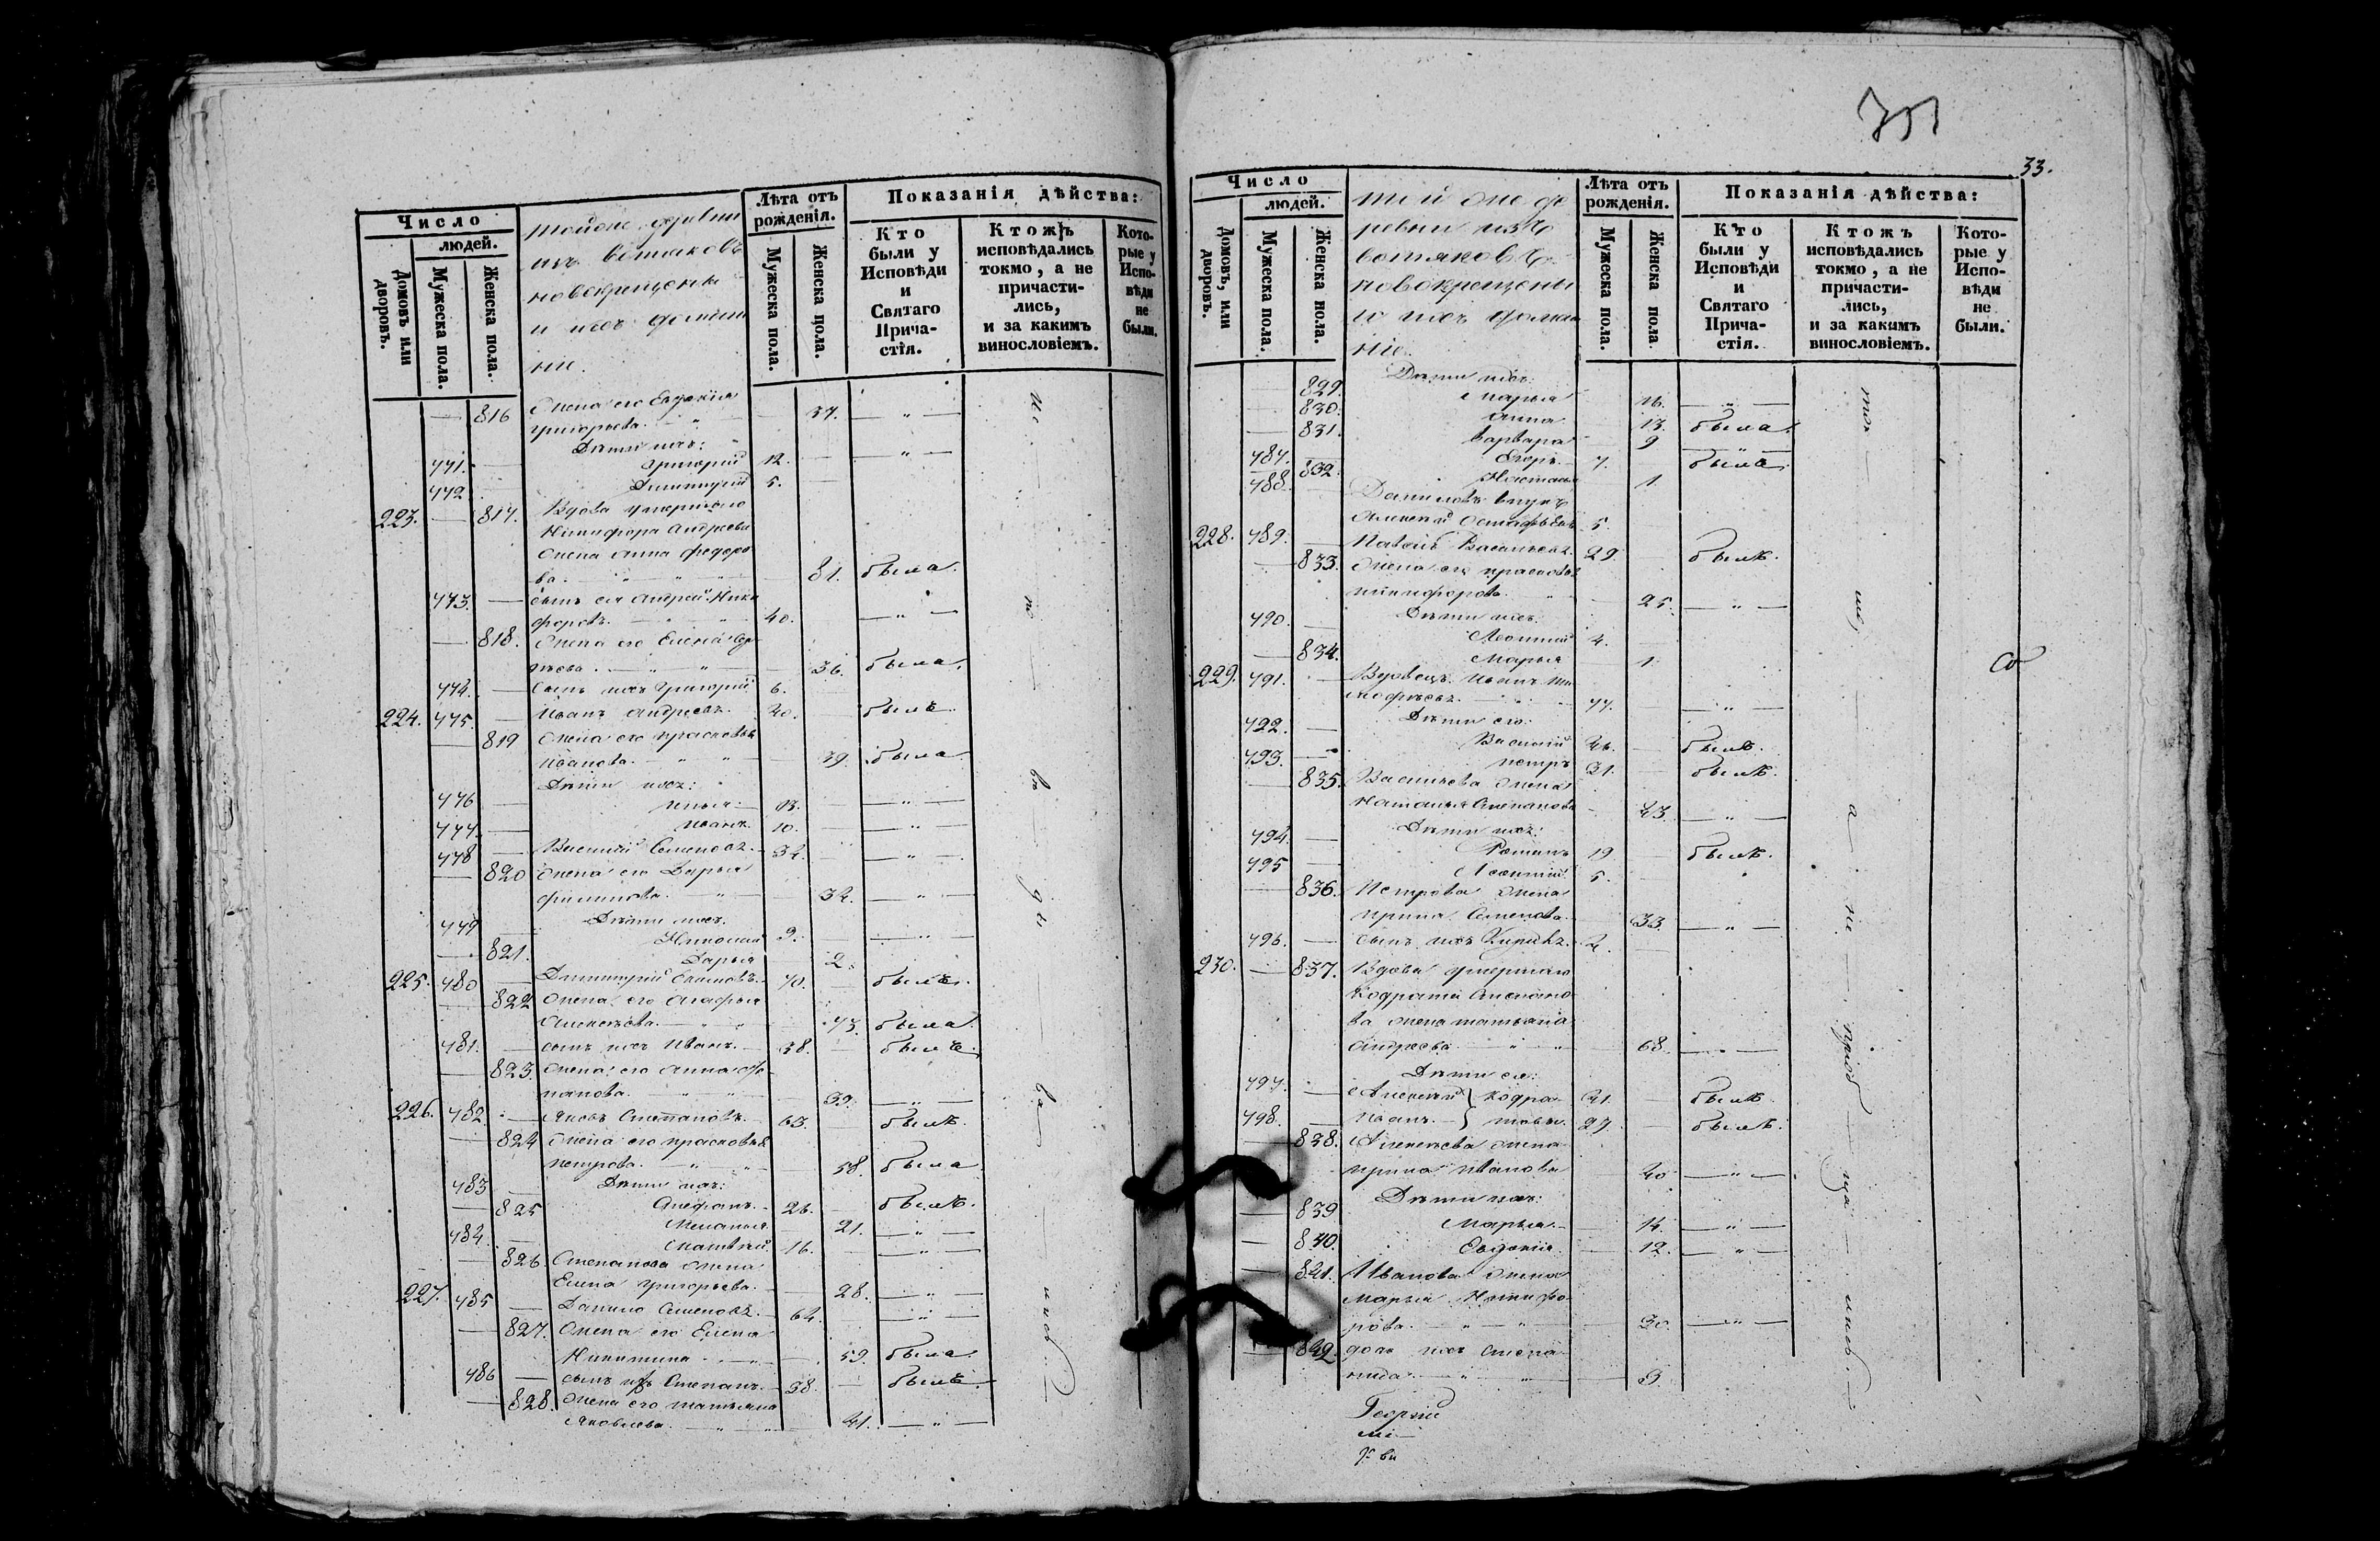 Число
людей.
Домовъ или дворовъ.
Мужеска пола.
Женска пола.
тойже деревни
изъ вотяковъ
новокрещены
и ихъ домаш
ніе.
Лѣта отъ рожденія.
Мужеска пола.
Женска пола.
Показанія дѣйства:
Кто были у Исповѣди и Святаго Прича-стія.
Ктожъ исповѣдались токмо, а не причасти-лись, и за какимъ винословіемъ.
Кото-рые у Испо-вѣди не были.
816 Жена его Евдокія
Григорьева. — „ 37. — „ —
Дѣти ихъ:
471. — Григорій 12. — „ —
472. Димитрій 5. —
223. — 817. Вдова умершаго
Никифора Андреева
жена Анна Федоро
ва. — „ — „ — 81. была.
473. — сынъ ея Андрей Ники
форовъ. 40. — „ —
818. Жена его Елена
— „ — 36. была.
474. — Сынъ ихъ Григорій 6.
224. 475. — Иванъ Андреевъ. 40. былъ.
819 Жена его Прасковья
Иванова. — „ „ — 39. была
Дѣти ихъ:
476 — Илья. 13. — „ —
477. — Иванъ. 10. — „ —
478 — Василій Семеновъ. 34. — „ —
820 Жена его Дарья
Филипова. — „ — 32. — „ —
Дѣти ихъ.
479 — Николай 9. — „ —
821. Дарья 2.
225. 480 — Димитрій 70. былъ.
822 Жена его Агафья
Алексѣева. — „ „ 73. была.
481. — сынъ ихъ Иванъ. — 38. — былъ.
823. Жена его Анна Сте
панова. — „ „ 39. — „ —
226. 482. — Яковъ Степановъ. 63. былъ.
824 Жена его Прасковья
Петрова. — „ „ 58. была
483 — Дѣти ихъ:
825 26. былъ.
Меланья 21. — „ —
484. — Матвѣй 16. — „ —
826 Степанова жена
Елена Григорьева. — 28. — „ —
227. 485 — Данило Семеновъ. 64. — „ —
827. Жена его Елена
Никитина — „ 59. была.
486 — сынъ ихъ Степанъ. 38. — былъ.
828. Жена его Татьяна
Яковлева. — „ „ 41. — „ —
33.
Число
людей.
Домовъ, или дворовъ.
Мужеска пола.
Женска пола.
той же де
ревни изъ
вотяковъ
новокрещены
и ихъ домаш
ніе.
Лѣта отъ рожденія.
Мужеска пола.
Женска пола
Показанія дѣйства:
Кто были у Исповѣди и Святаго Прича-стія.
Ктожъ исповѣдались токмо, а не причасти-лись, и за какимъ винословіемъ.
Кото-рые у Испо-вѣди не были.
Дѣти ихъ:
829. Марья 16. — „ —
830. Анна 13. была.
831. Варвара 9 — „ —
487. Егоръ. 7. была.
832. Настасья 1.
488. Даниловъ внукъ
Алексѣй 5.
228. 489. — Павелъ Васильевъ. 29. былъ.
833. Жена его Прасковья
Никифорова. 25. — „ —
490. — Дѣти ихъ:
Леонтій 4. —
834. Марья 1.
229. 491. — Вдовецъ Иванъ Ти
мофѣевъ. 77. — „ —
492. — Дѣти его:
Василій 46. былъ.
493. — Петръ 31. — былъ.
835. Васильева жена
Наталья Степанова 43. — „ —
494. — Дѣти ихъ:
Романъ 19 — былъ.
495 — Леонтій 5. —
836. Петрова жена
Ирина Семенова. 33. — „ —
496. — сынъ ихъ 2.
230. — 837. Вдова умершаго
Кодратія Степано
ва жена Татьяна
Андреева. — „ „ 68. — „ —
Дѣти ея:
497. — Алексѣй } Кодра 41. — былъ.
498. — Иванъ. } товы. 27. — былъ.
838. Алексѣева жена
Ирина Иванова 40 — „ —
Дѣти ихъ:
839 Марья. 14. — „ —
840. Евдокія. 12. — „ —
841. Иванова жена
Марья Никифо
рова. — „ — „ — 30. — „ —
842. дочь ихъ Степа
нида. — „ — „ — 3.
Георгій